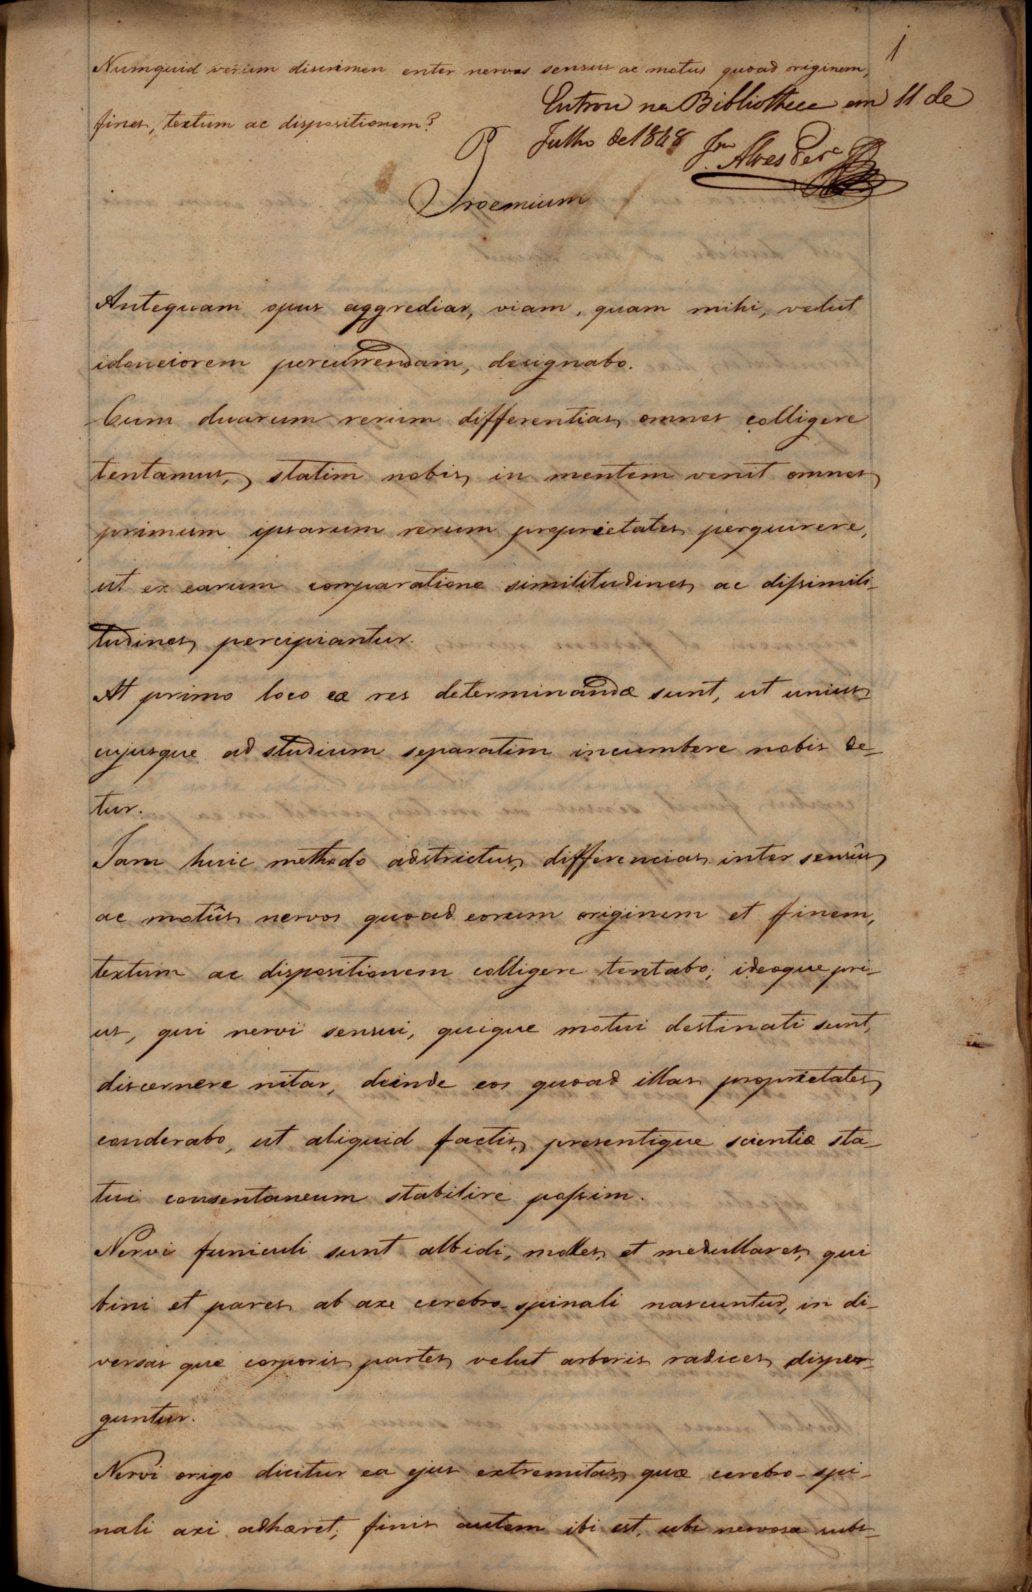 1
Numquid verum discrimen enter nervos sensus ac motus quoad originem,
fines, textum ac dispositionem?
Entrou na Bibliotheca em 11 de
Julho de 1848 Alves
Proemium
Antequam opus aggrediar, viam, quam mihi, velut
idoneiorem percurrendam, designabo.
Cum duarum rerum differentias omnes colligere
tentamus, statim nobis in mentem venit omnes
primum ipsarum rerum proprietates perquirere,
ut ex earum comparatione similitudines ac dissimili-
tudines percipiantur.
At primo loco eæ res determinandæ sunt, ut unius-
cujusque ad studium separatim incumbere nobis de-
tur.
Jam huic methodo adstrictus, differencias inter sensûs
ac motûs nervos quoad eorum originem et finem,
textum ac dispositionem colligere tentabo; ideoque pri-
us, qui nervi sensui, quique motui destinati sunt,
discernere nitar, deinde eos quoad illas proprietates
conderabo, ut aliquid factis, presentique scientiæ sta-
tui consentaneum stabilire possim.
Nervi funiculi sunt albidi, molles, et medullares, qui
bini et pares ab axe cerebro-spinali nascuntur, in di-
versas que corporis partes velut arboris radices disper-
guntur.
Nervi origo dicitur ea ejus extremitas, quæ cerebro-spi-
nali axi adhæret; finis autem ibi est, ubi nervosa subs-